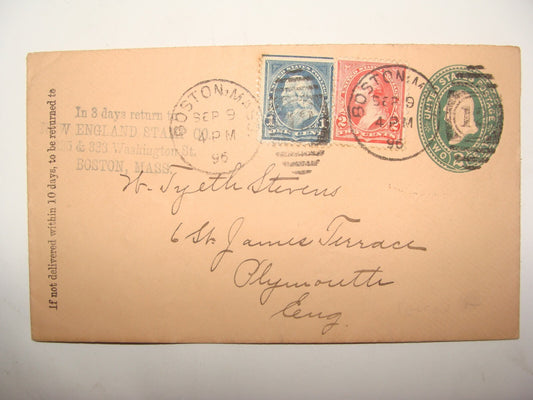 If not delivered within 10 days, to be returned to
In 3 days return to
W ENGLAND STAMP CO.
& 323 Washington St.
BOSTON, MASS.
BOSTON, MA
SEP 9
4 PM
96
ONE CENT
BOSTON, MA
SEP 9
4 PM
96
2 2
UNITED STATES
TWO
W. Tyeth Stevens
6 St. James Terrace
Plymouth
Eng.